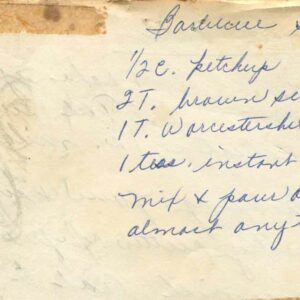 Barbecue
1/2 c. ketchup
2 T. brown su
1 T. Worcestershi
1 tsp. instant
Mix & pour o
almost any